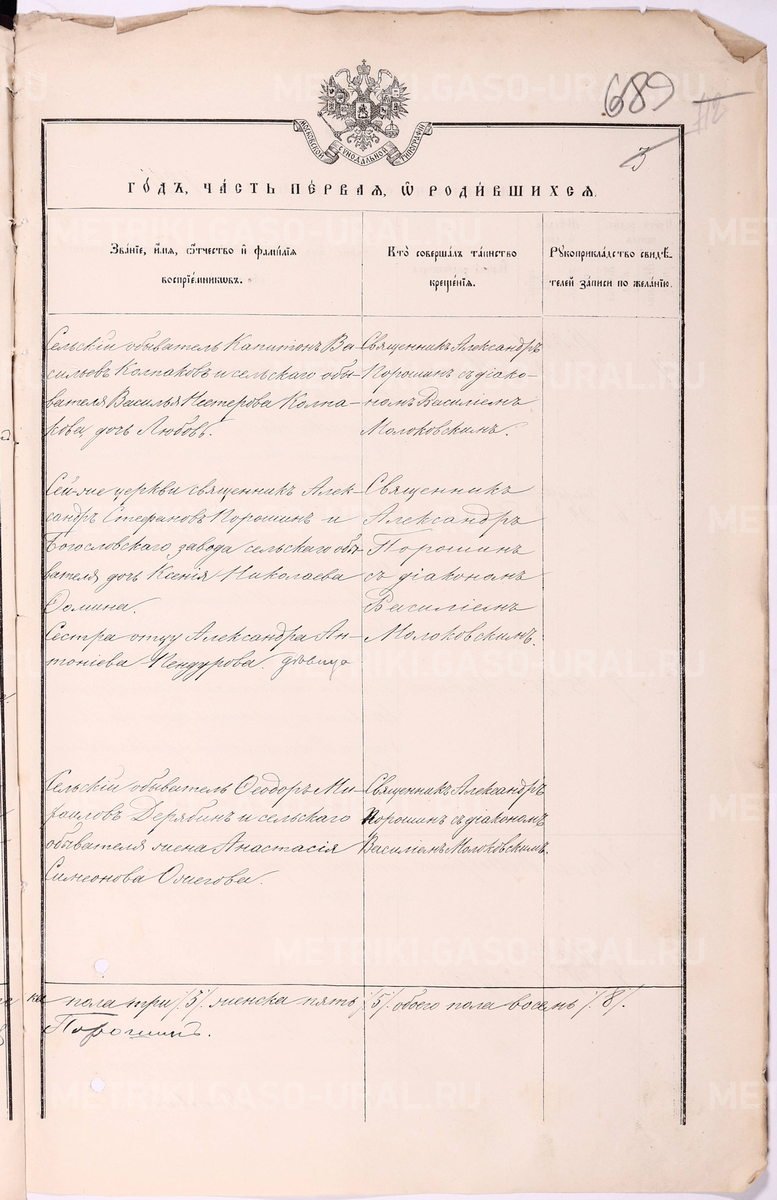 689
112
3
МОСКОВСКОЙ СѴНОДАЛЬНОЙ ТИПОГРАФІИ
ГОДЪ, ЧАСТЬ ПЕРВАЯ, Ѡ РОДИВШИХСЯ.
Званіе, имя, ѻтчество и фамилія
воспріемниковъ.
Кто совершалъ таинство
крещенія.
Рукоприкладство свидѣ-
телей записи по желанію.
Сельскій обыватель Капитонъ Ва-
сильевъ Колпаковъ и сельскаго обы-
вателя Василья Нестерова Колпа-
кова, дочь Любовь.
Священникъ Александръ
Порошинъ съ діако-
номъ Василіемъ
Молоковскимъ.
Сей-же церкви священникъ Алек-
сандръ Стефановъ Порошинъ и
Богословскаго завода сельскаго обы-
вателя дочь Ксенія Николаева
Ѳомина.
Сестра отцу Александра Ан-
тоніева девица
Священникъ
Александръ
Порошинъ
съ діакономъ
Василіемъ
Молоковскимъ.
Сельскій обыватель Ѳеодоръ Ми-
хаиловъ Дерябинъ и сельскаго
обывателя жена Анастасія
Симеонова Ожегова.
Священникъ Александръ
Порошинъ съ діакономъ
Василіемъ Молоковскимъ.
пола три /3/. женска пять /5/. обоего пола восемь /8/.
Порошинъ.
METRIKI.GASO-URAL.RU